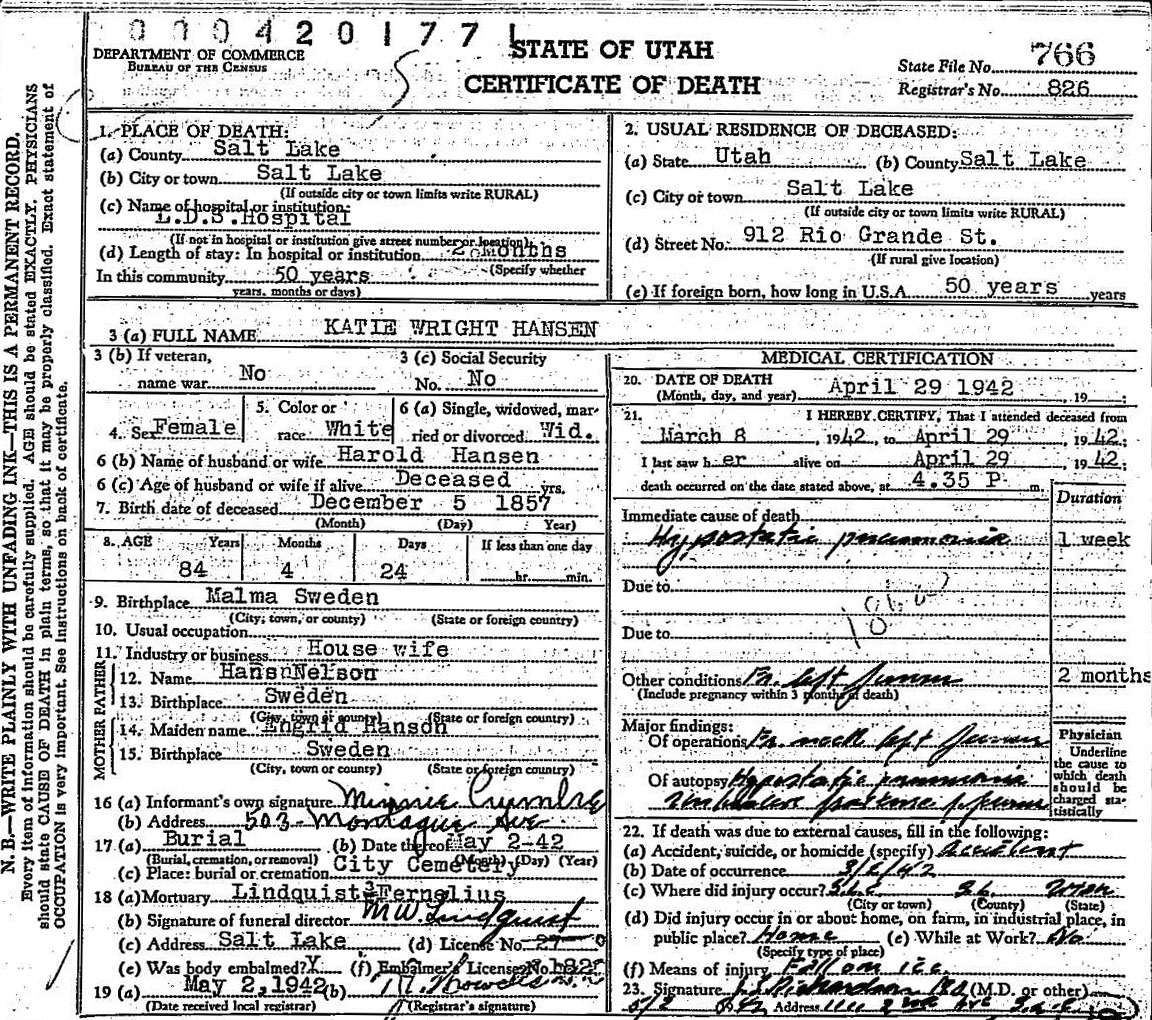 000420177
DEPARTMENT OF COMMERCE
BUREAU OF THE CENSUS
STATE OF UTAH
CERTIFICATE OF DEATH
State File No. 766
Registrar's No. 826
N. B.—WRITE PLAINLY WITH UNFADING INK—THIS IS A PERMANENT RECORD.
Every item of information should be carefully supplied. AGE should be stated EXACTLY. PHYSICIANS
should state CAUSE OF DEATH in plain terms, so that it may be properly classified. Exact statement of
OCCUPATION is very important. See instructions on back of certificate.
1. PLACE OF DEATH:
(a) County Salt Lake
(b) City or town Salt Lake
(If outside city or town limits write RURAL)
(c) Name of hospital or institution:
L.D.S. Hospital
(If not in hospital or institution give street number or location)
(d) Length of stay: In hospital or institution 2 Months
(Specify whether
In this community 50 years
years, months or days)
2. USUAL RESIDENCE OF DECEASED:
(a) State Utah (b) County Salt Lake
(c) City or town Salt Lake
(If outside city or town limits write RURAL)
(d) Street No. 912 Rio Grande St.
(If rural give location)
(e) If foreign born, how long in U.S.A. 50 years years
3 (a) FULL NAME KATIE WRIGHT HANSEN
3 (b) If veteran, 3 (c) Social Security
name war No No. No
4. Sex Female 5. Color or race White 6 (a) Single, widowed, married or divorced Wid.
6 (b) Name of husband or wife Harold Hansen
6 (c) Age of husband or wife if alive Deceased yrs.
7. Birth date of deceased December 5 1857
(Month) (Day) Year)
8. AGE Years Months Days If less than one day
84 4 24 hr. min.
9. Birthplace Malma Sweden
(City, town, or county) (State or foreign country)
10. Usual occupation
11. Industry or business House wife
FATHER
12. Name Hans Nelson
13. Birthplace Sweden
(City, town or county) (State or foreign country)
MOTHER
14. Maiden name Engrid Hanson
15. Birthplace Sweden
(City, town or county) (State or foreign country)
16 (a) Informant's own signature Minnie
(b) Address 503 Montague Ave
17 (a) Burial (b) Date thereof May 2-42
(Burial, cremation, or removal) (Month) (Day) (Year)
(c) Place: burial or cremation City Cemetery
18 (a) Mortuary Lindquist Fernelius
(b) Signature of funeral director M W Lindquist
(c) Address Salt Lake (d) License No.
(e) Was body embalmed? Y (f) Embalmer's License No. 182
19 (a) May 2, 1942 (b)
(Date received local registrar) (Registrar's signature)
MEDICAL CERTIFICATION
20. DATE OF DEATH
(Month, day, and year) April 29 1942 , 19 ;
21. I HEREBY CERTIFY, That I attended deceased from
March 8 , 1942, to April 29 , 1942;
I last saw h er alive on April 29 , 1942;
death occurred on the date stated above, at 4.35 P m.
Duration
Immediate cause of death
Hypostatic pneumonia 1 week
Due to
Due to
Other conditions Fr. left femur 2 months
(Include pregnancy within 3 months of death)
Major findings:
Of operations Fr. neck left femur
Of autopsy Hypostatic pneumonia
Physician
Underline
the cause to
which death
should be
charged statistically
22. If death was due to external causes, fill in the following:
(a) Accident, suicide, or homicide (specify) Accident
(b) Date of occurrence 3/6/42
(c) Where did injury occur? S.L.C. S.L. Utah
(City or town) (County) (State)
(d) Did injury occur in or about home, on farm, in industrial place, in
public place? Home (e) While at Work? No
(Specify type of place)
(f) Means of injury Fall on ice
23. Signature Richardson (M.D. or other)
5/2 Address